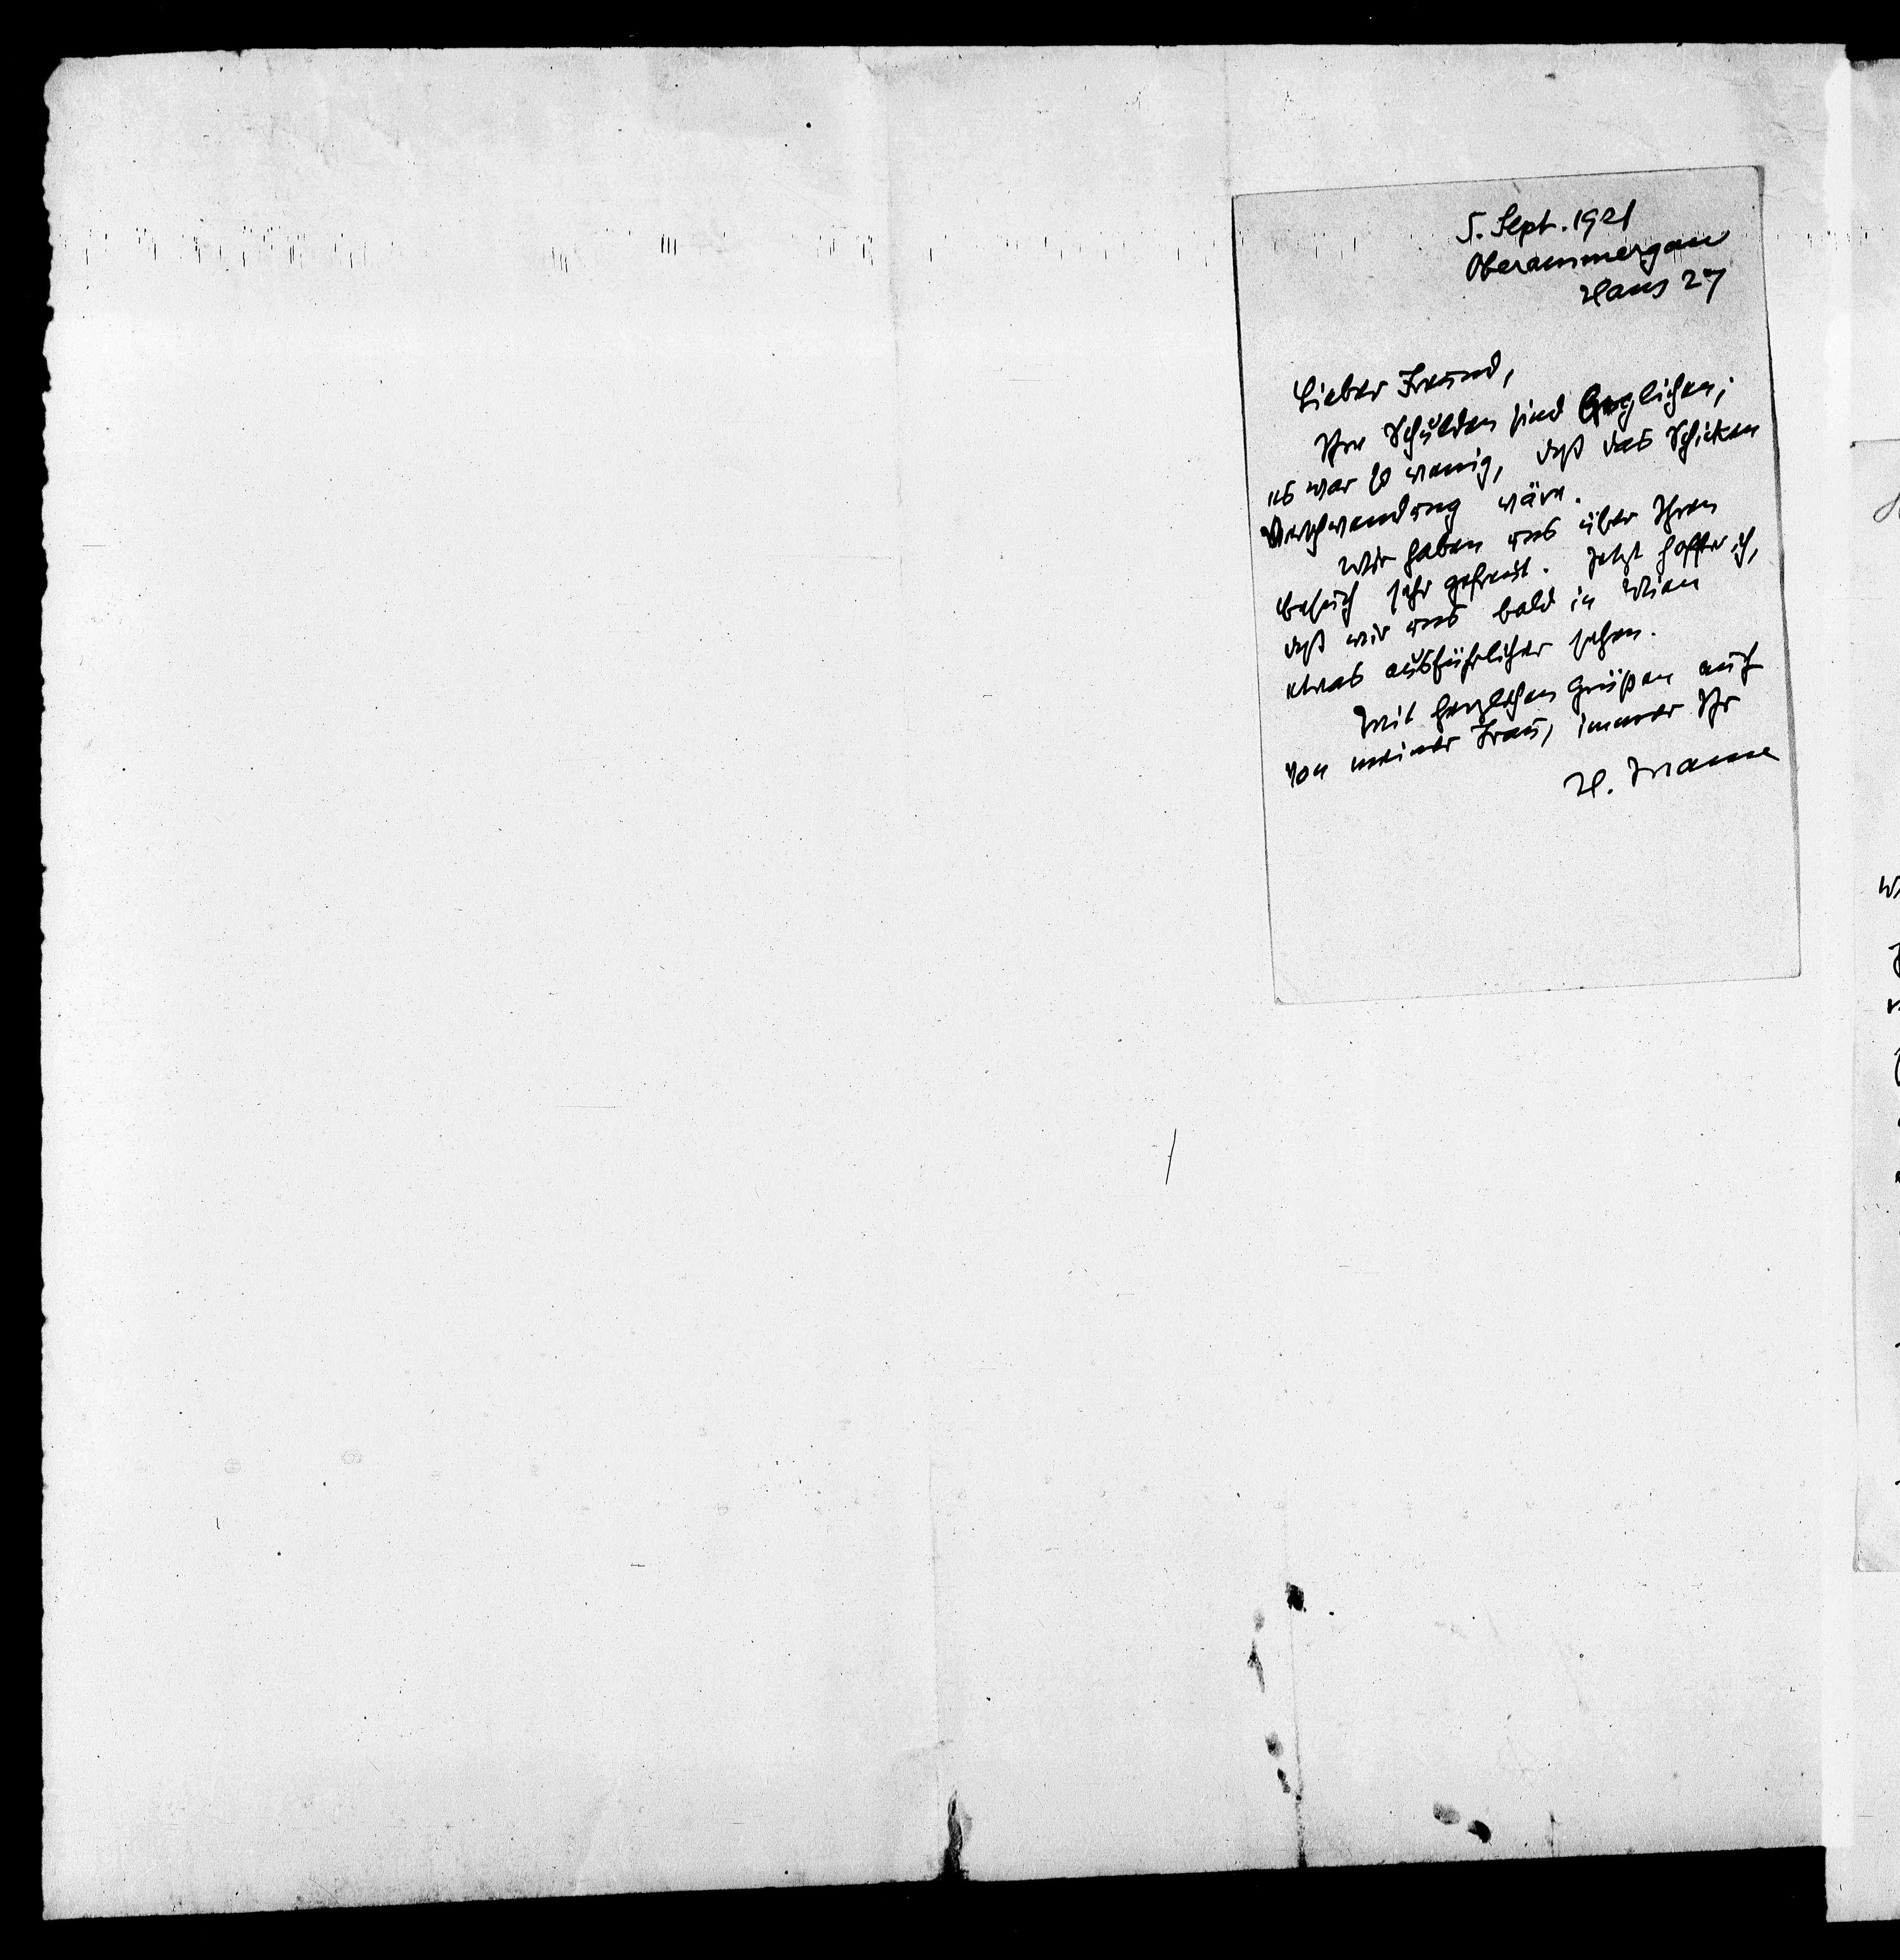 5. Sept. 1921
Oberammergau
Haus 27
Lieber Freund,
Ihre Schulden sind beglichen;
es war so wenig, daß das Schicken
Verschwendung wäre.
Wir haben uns über Ihren
Besuch sehr gefreut. Jetzt hoffe ich,
daß wir uns bald in Wien
etwas ausführlicher sehen.
Mit herzlichen Grüßen auch
von meiner Frau, immer Ihr
H. Mann